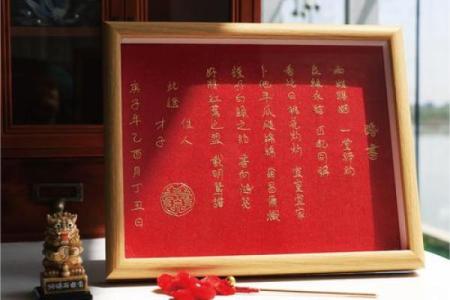 婚書
兩姓聯姻 一堂締約
良緣永結 匹配同稱
看此日桃花灼灼 宜室宜家
卜他年瓜瓞綿綿 爾昌爾熾
謹以白頭之約 書向鴻箋
好將紅葉之盟 載明鴛譜
此證
佳人
才子
庚子年乙酉月丁丑日